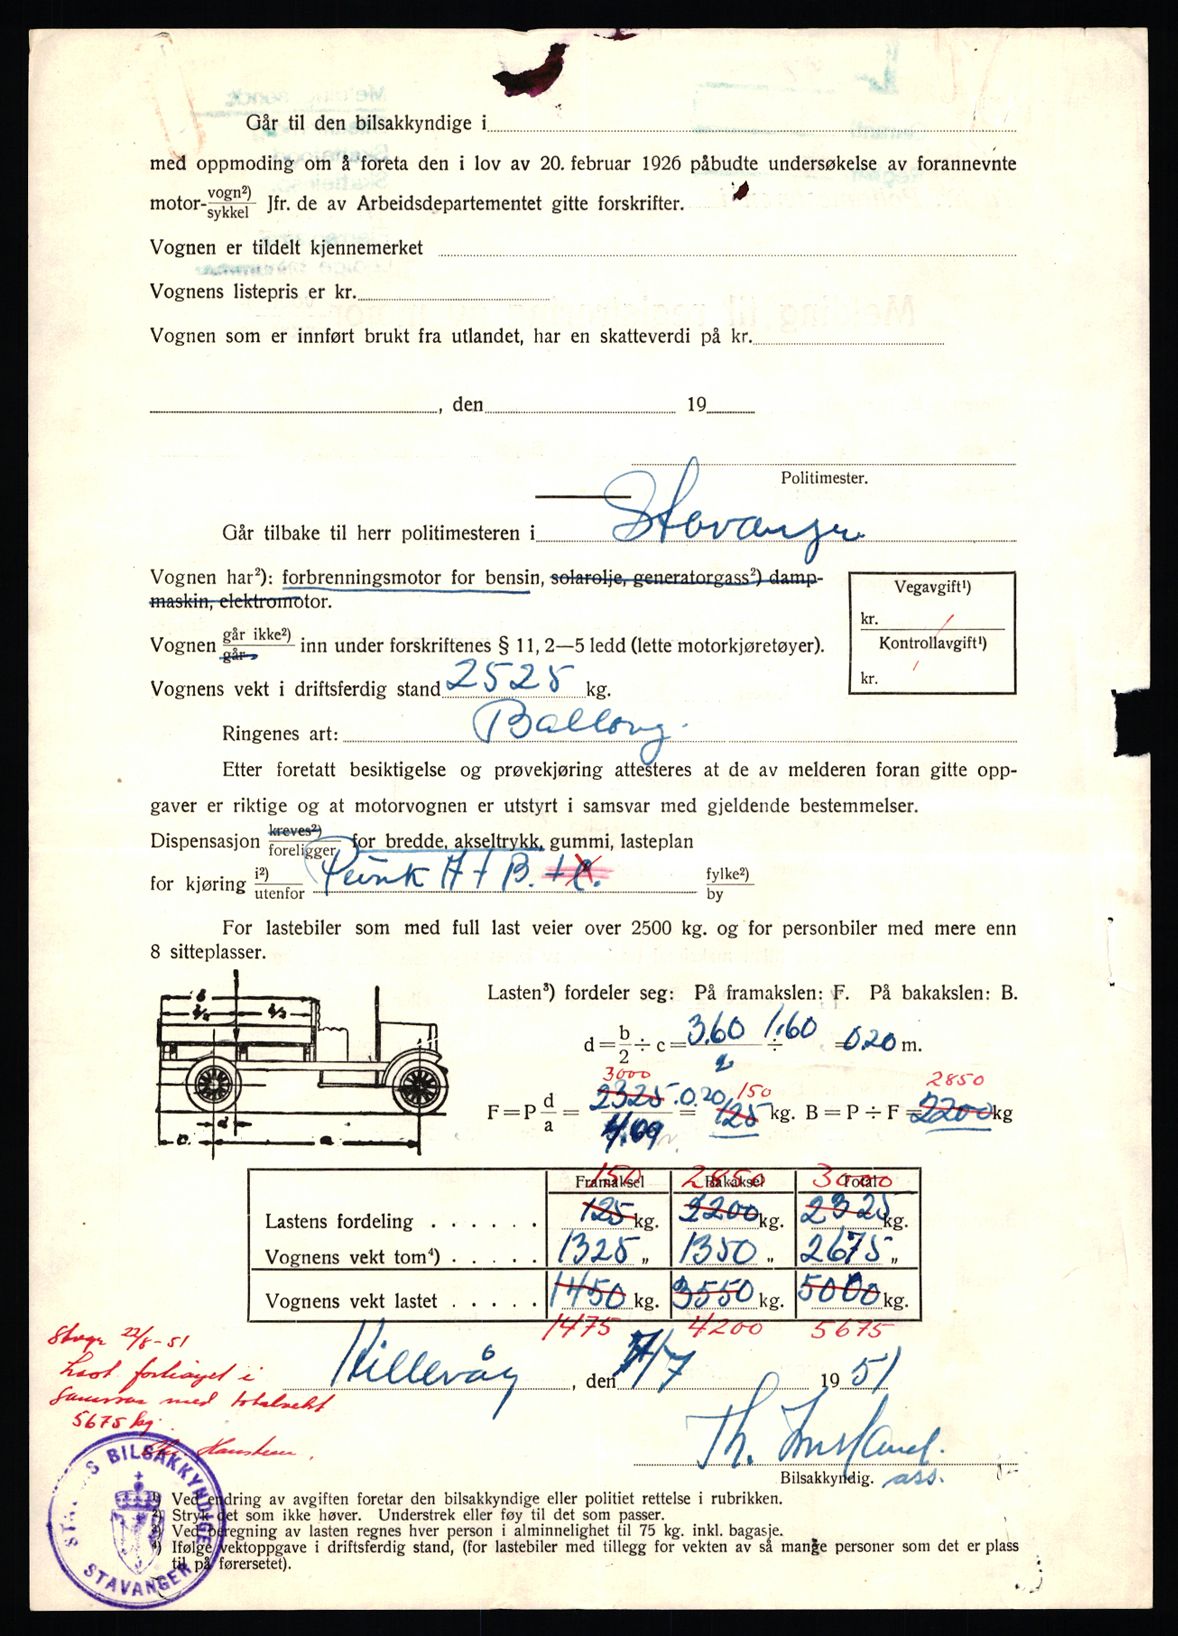 Går til den bilsakkyndige i
med oppmoding om å foreta den i lov av 20. februar 1926 påbudte undersøkelse av forannevnte
motor- vogn²) / sykkel Jfr. de av Arbeidsdepartementet gitte forskrifter.
Vognen er tildelt kjennemerket
Vognens listepris er kr.
Vognen som er innført brukt fra utlandet, har en skatteverdi på kr.
, den 19
Politimester.
Går tilbake til herr politimesteren i Stavanger
Vognen har²): forbrenningsmotor for bensin, solarolje, generatorgass²) damp-
maskin, elektromotor.
Vegavgift¹)
kr. /
Kontrollavgift¹)
kr. /
Vognen går ikke²) / går inn under forskriftenes § 11, 2—5 ledd (lette motorkjøretøyer).
Vognens vekt i driftsferdig stand 2525 kg.
Ringenes art: Ballong.
Etter foretatt besiktigelse og prøvekjøring attesteres at de av melderen foran gitte opp-
gaver er riktige og at motorvognen er utstyrt i samsvar med gjeldende bestemmelser.
Dispensasjon kreves²) / foreligger for bredde, akseltrykk, gummi, lasteplan
for kjøring i²) / utenfor Punk A + B. + C. fylke²) / by
For lastebiler som med full last veier over 2500 kg. og for personbiler med mere enn
8 sitteplasser.
Lasten³) fordeler seg: På framakslen: F. På bakakslen: B.
b
b/2 b/2
d = b/2 ÷ c = 3.60 / 2 ÷ 1.60 = 0.20 m.
3000 150 2850
F = P d/a = 2325 . 0.20 / 4.09 = 125 kg. B = P ÷ F = 2200 kg
c d a
150 2850 3000
Framaksel Bakaksel Totalt
Lastens fordeling . . . . . . 125 kg. 2200 kg. 2325 kg.
Vognens vekt tom⁴) . . . . . 1325 „ 1350 „ 2675 „
Vognens vekt lastet . . . . . 1450 kg. 3550 kg. 5000 kg.
1475 4200 5675
Stvgr 22/8-51
Last forhøyet i
samsvar med totalvekt
5675 kg.
Hillevåg, den 7/7 1951
Th.
Bilsakkyndig. ass.
STATENS BILSAKKYNDIGE
STAVANGER
¹) Ved endring av avgiften foretar den bilsakkyndige eller politiet rettelse i rubrikken.
²) Stryk det som ikke høver. Understrek eller føy til det som passer.
³) Ved beregning av lasten regnes hver person i alminnelighet til 75 kg. inkl. bagasje.
⁴) Ifølge vektoppgave i driftsferdig stand, (for lastebiler med tillegg for vekten av så mange personer som det er plass
til på førersetet).